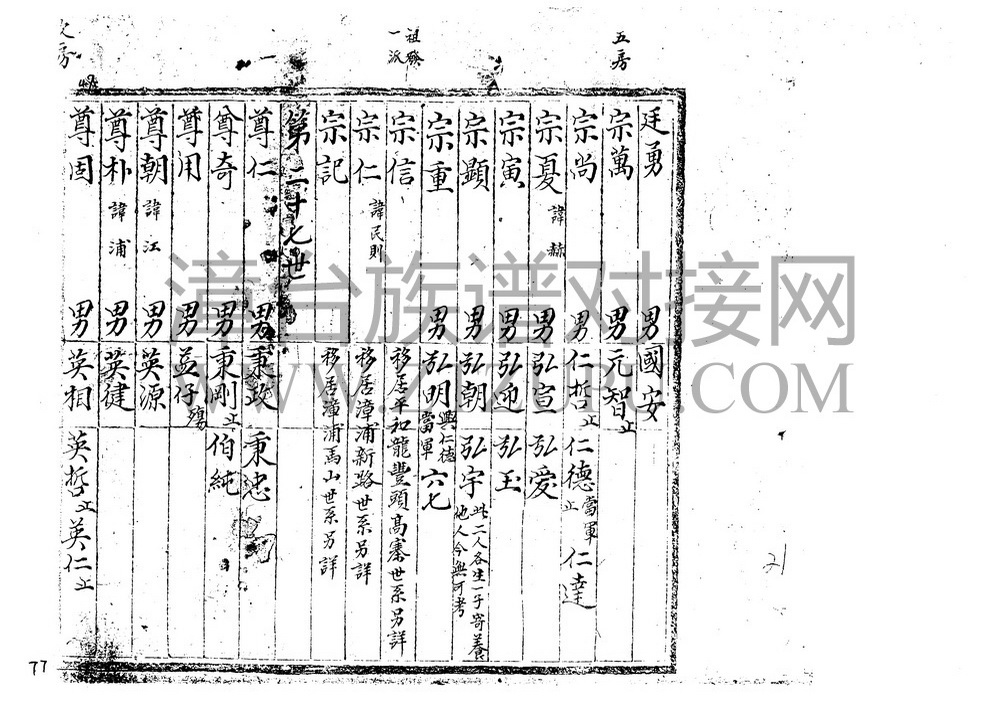 五房
祖發
一派
房
廷勇 男 國安
宗萬 男 元智 止
宗尚 男 仁哲 止 仁德 當軍 止 仁達
宗憂 諱赫 男 弘宣 弘愛
宗寅 男 弘迎 弘玉
宗顯 男 弘朝 弘宇 此二人各生一子寄養他人今無可考
宗重 男 弘明 與仁德當軍 六七
宗信 移居平和龍豐頭高寨世系另詳
宗仁 諱民則 移居漳浦新路世系另詳
宗記 移居漳浦馬山世系另詳
第二十七世
尊仁 男 秉政 秉忠
尊奇 男 秉剛 止 伯純
尊用 男 益仔 殤
尊朝 諱江 男 英源
尊朴 諱浦 男 英健
尊固 男 英相 英哲 止 英仁 止
漳台族谱对接网
WWW.ZTZUPU.COM
21
77